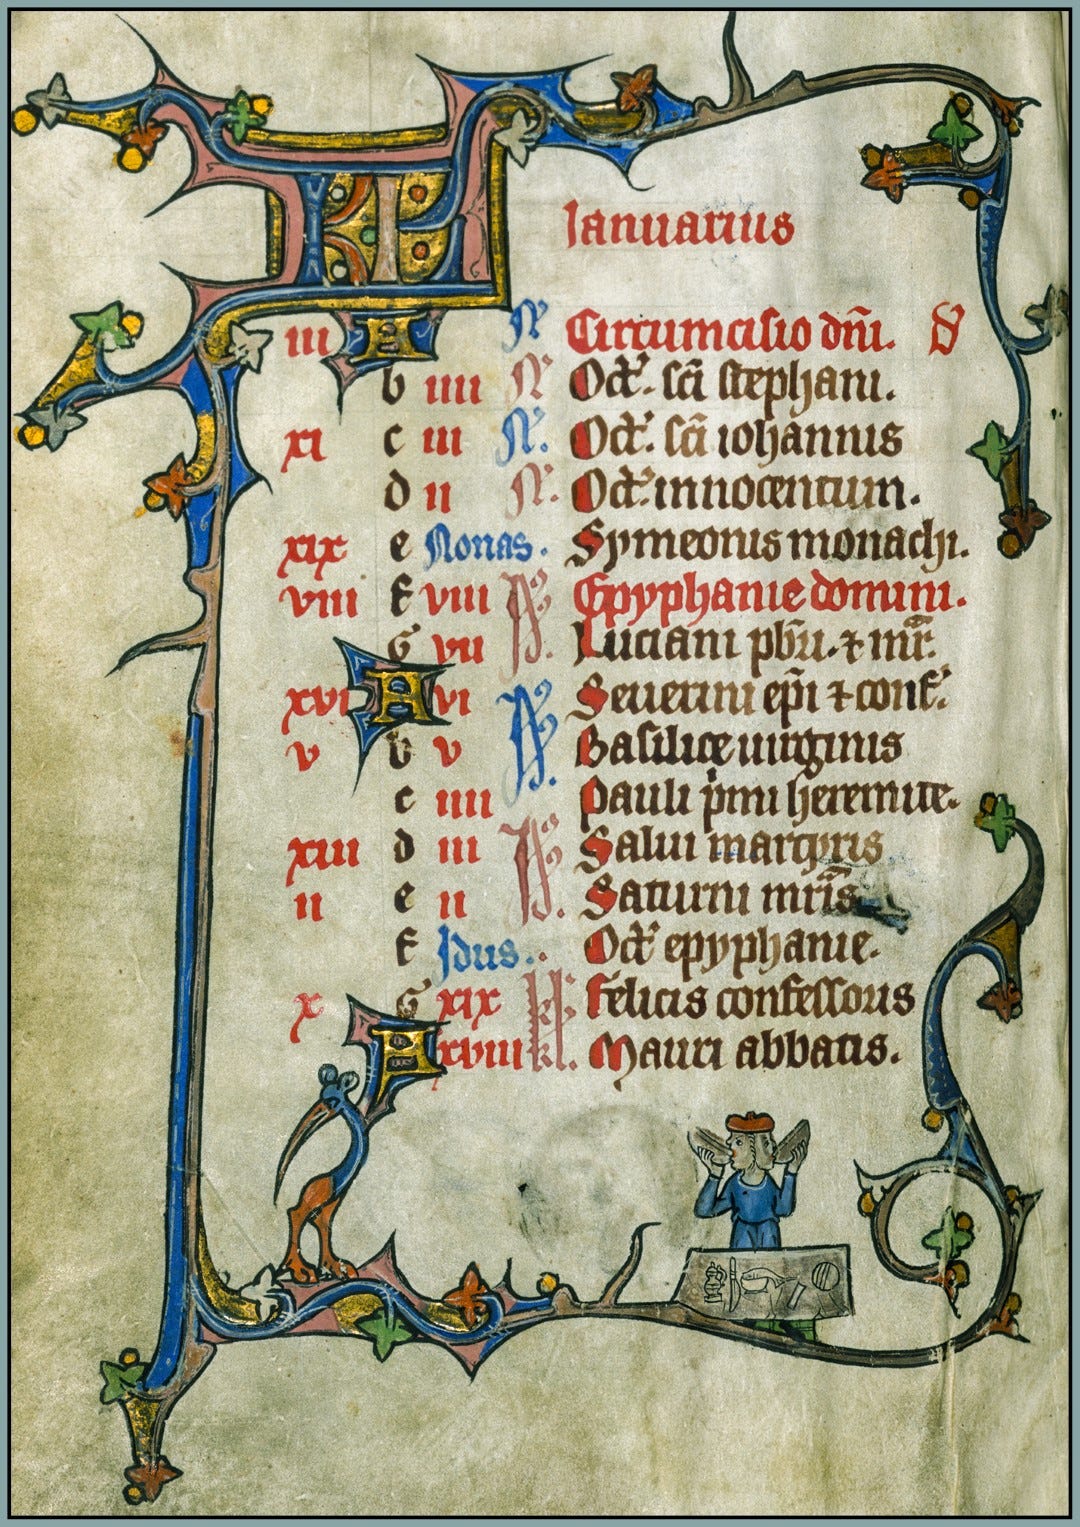 KL Ianuarius
iii A N Circumcisio dñi. S
b iiii N Oct̄. sc̄i stephani.
xi c iii N. Oct̄. sc̄i iohannis
d ii N. Oct̄. innocentum.
xix e Nonas. Symeonis monachi.
viii f viii Js. Epyphanie domini.
G vii Luciani pb̄ri. ⁊ mr̄.
xvi A vi Js. Seuerini ep̄i ⁊ conf̄.
v b v Basilice uirginis
c iiii Pauli pimi heremite.
xiii d iii Js. Salui martyris
ii e ii Saturni mr̄is
f Idus. Oct̄ epyphanie.
x G xix kl. Felicis confessoris
A xviii kl. Mauri abbatis.